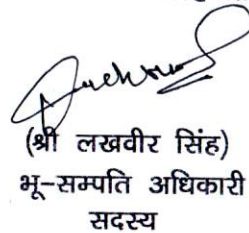 (श्री लखवीर सिंह)
भू-सम्पति अधिकारी
सदस्य